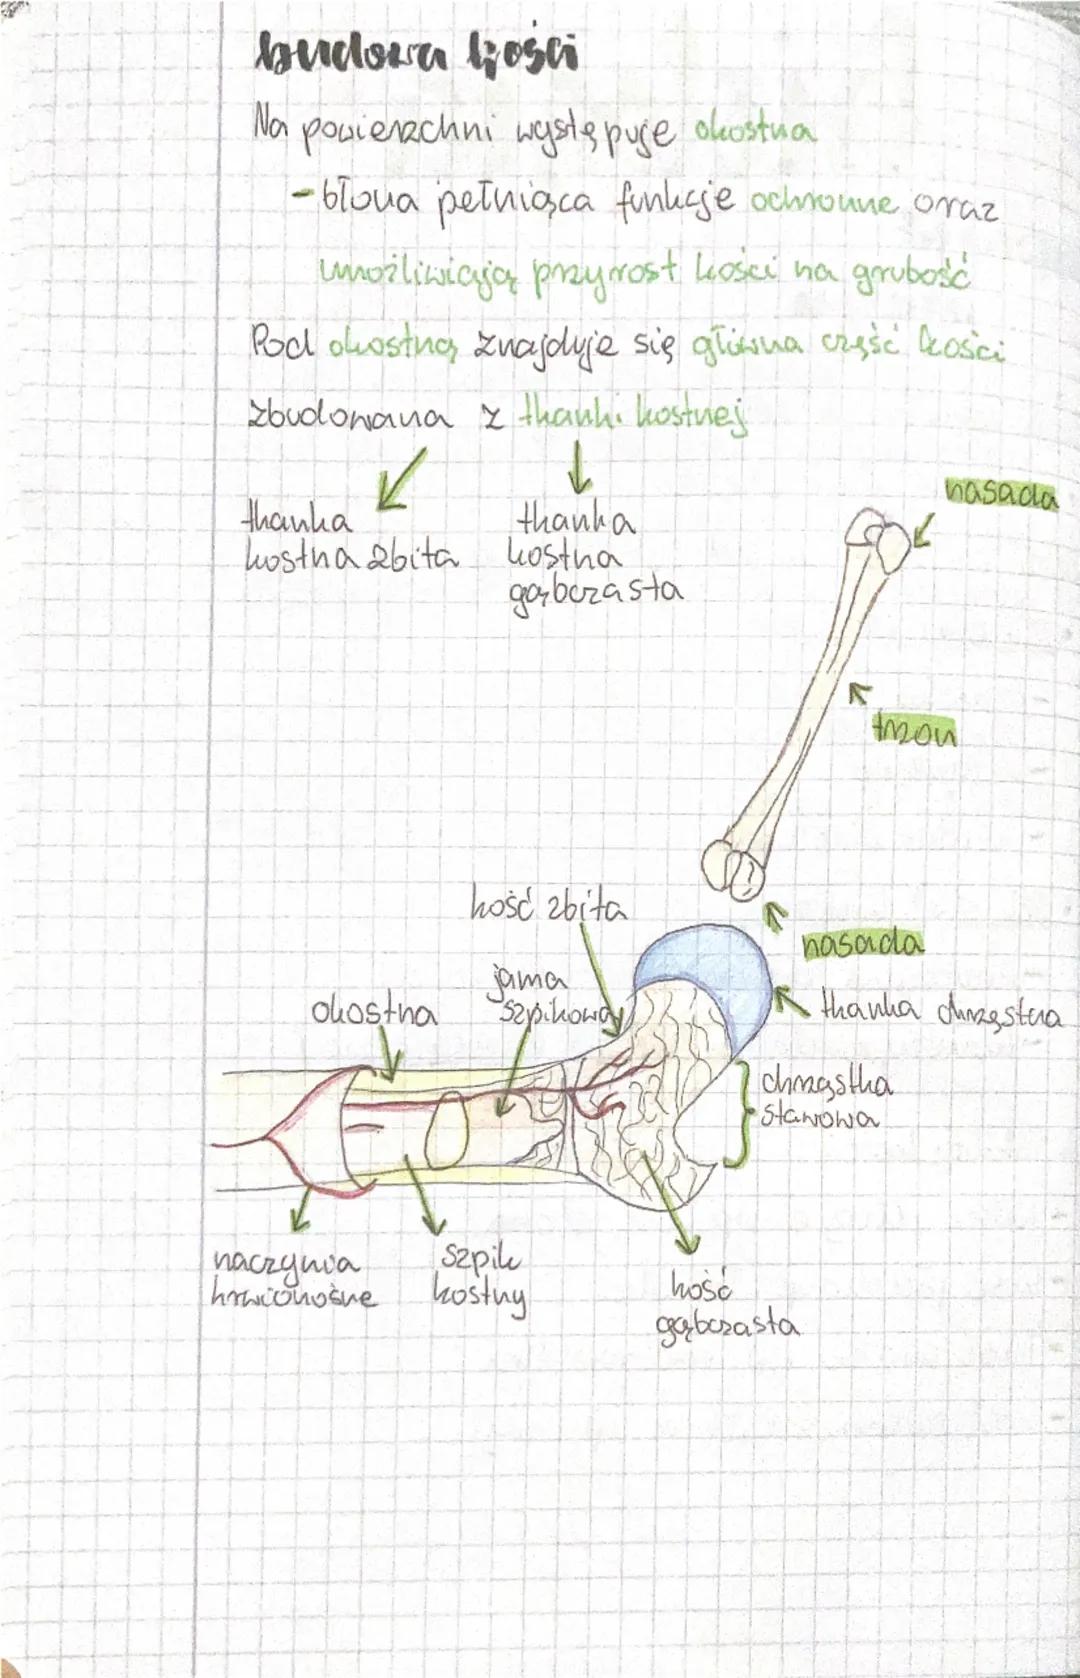 budowa kości
Na powierzchni występuje okostna
- błona pełniąca funkcje ochronne oraz
umożliwiają przyrost kości na grubość
Pod okostną znajduje się główna część kości
zbudowana z tkanki kostnej
tkanka
kostna zbita
tkanka
kostna
gąbczasta
nasada
trzon
nasada
kość zbita
jama
szpikowa
okostna
tkanka chrzęstna
chrząstka
stawowa
naczynia
krwionośne
szpik
kostny
kość
gąbczasta